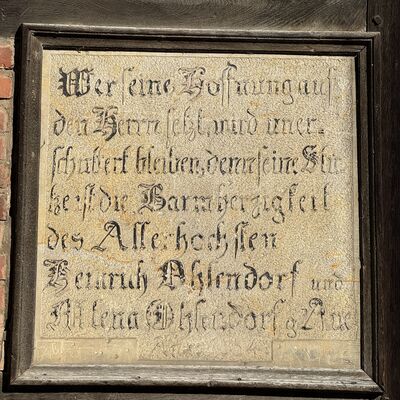 Wer seine Hoffnung auf
den Herrn setzt, wird uner-
schüttert bleiben, denn seine Stüt
ze ist die Barmherzigkeit
des Allerhöchsten
Heinrich Ohlendorf und
Ohlendorf g